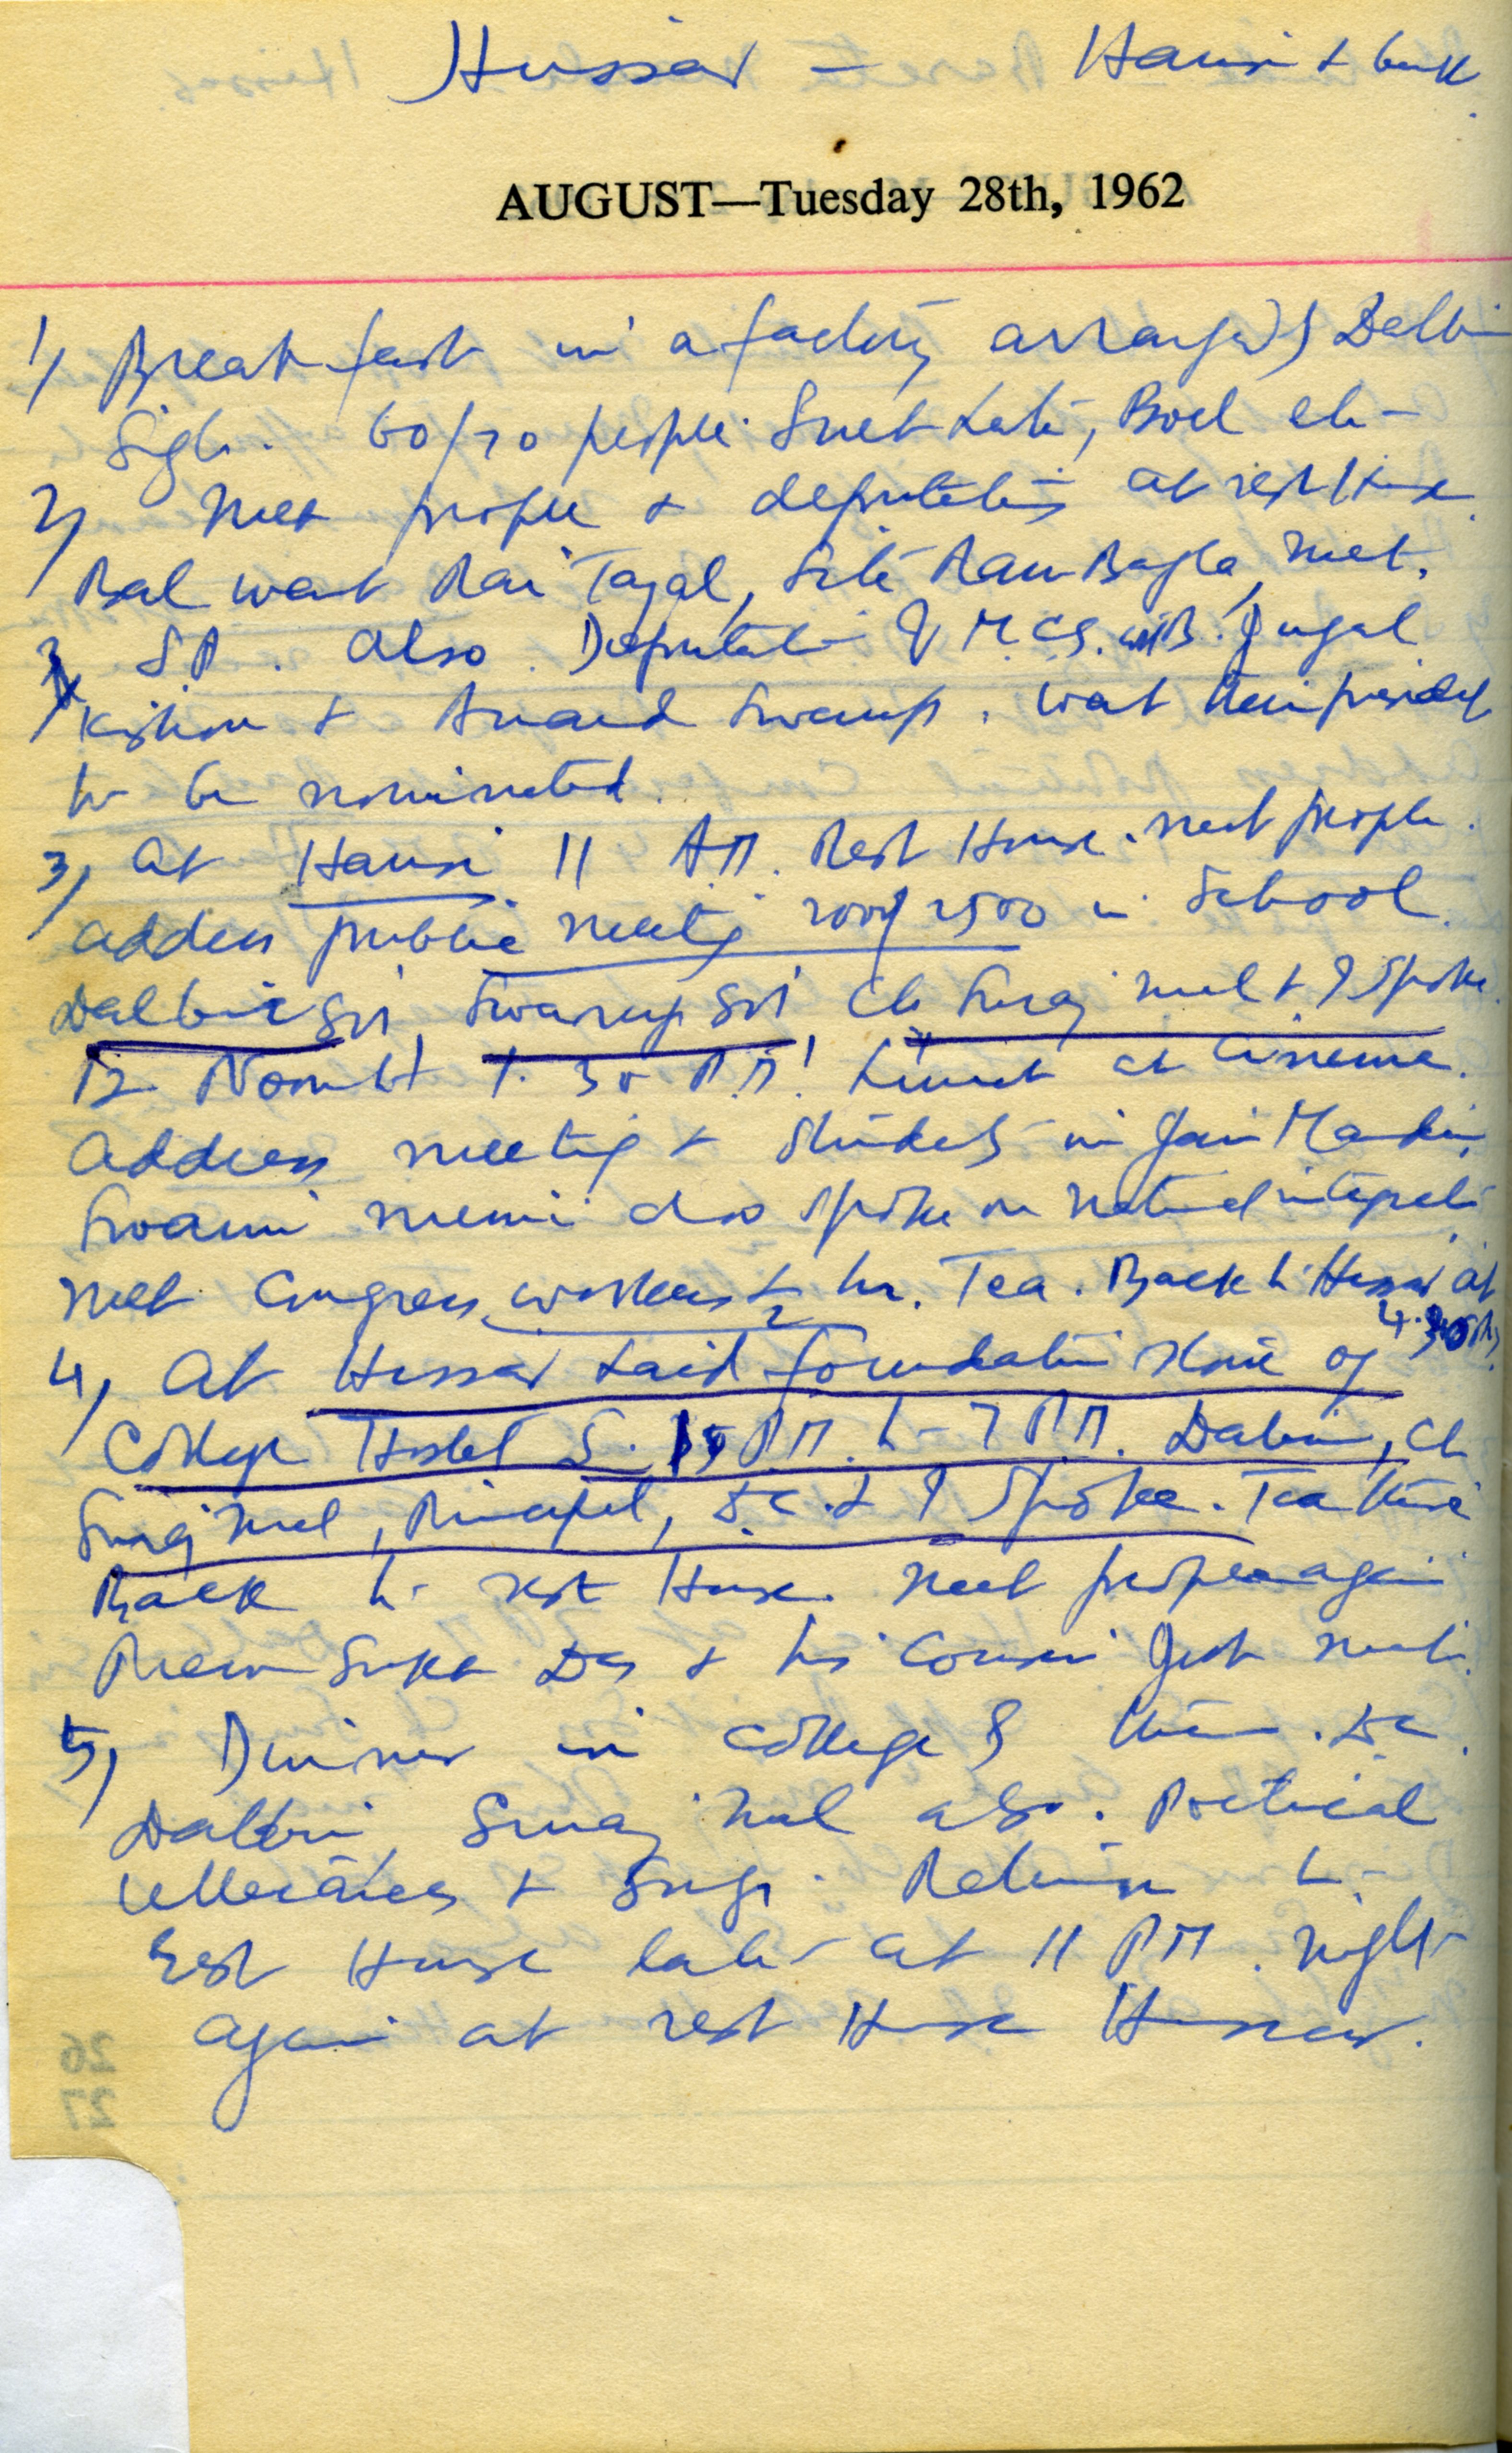 Hissar — Hansi & back
AUGUST—Tuesday 28th, 1962
1) Breakfast in a factory arranged by Dalbir
Sigh. 60/70 people. Boel etc
2) Met people & deputations at rest House.
Bal want Rai Tayal, Sita Ram Bagla, met.
S.P. also Deputation of M.Cs. with Jugal
Kishore & Anand Swarup. Want their president
to be nominated.
3) At Hansi 11 A.M. Rest House. met people.
address public meeting 2000/2500 in School.
Dalbir Sgh, Swarup Sgh, Ch Suraj mal & I spoke.
12 Noon to 1.30 P.M. Lunch at Cinema.
Address meeting & Students in Jain Mandir,
Swami spoke on National integrati
Met Congress workers ½ hr. Tea. Back to Hissar at
4.30 P.M.
4) At Hissar Laid foundation stone of
College Hostel 5.15 P.M. to 7 P.M. Dalbir, Ch
Suraj Mal, Principal, D.C. & I spoke. Tea there
Back to rest House. Meet people again
Prem Sukh Das & his Cousin
5) Dinner in college & there. DC.
Dalbir, Suraj Mal also. Poetical
& Songs. Return to
rest House late at 11 PM. Night
again at rest House Hissar.
26
27